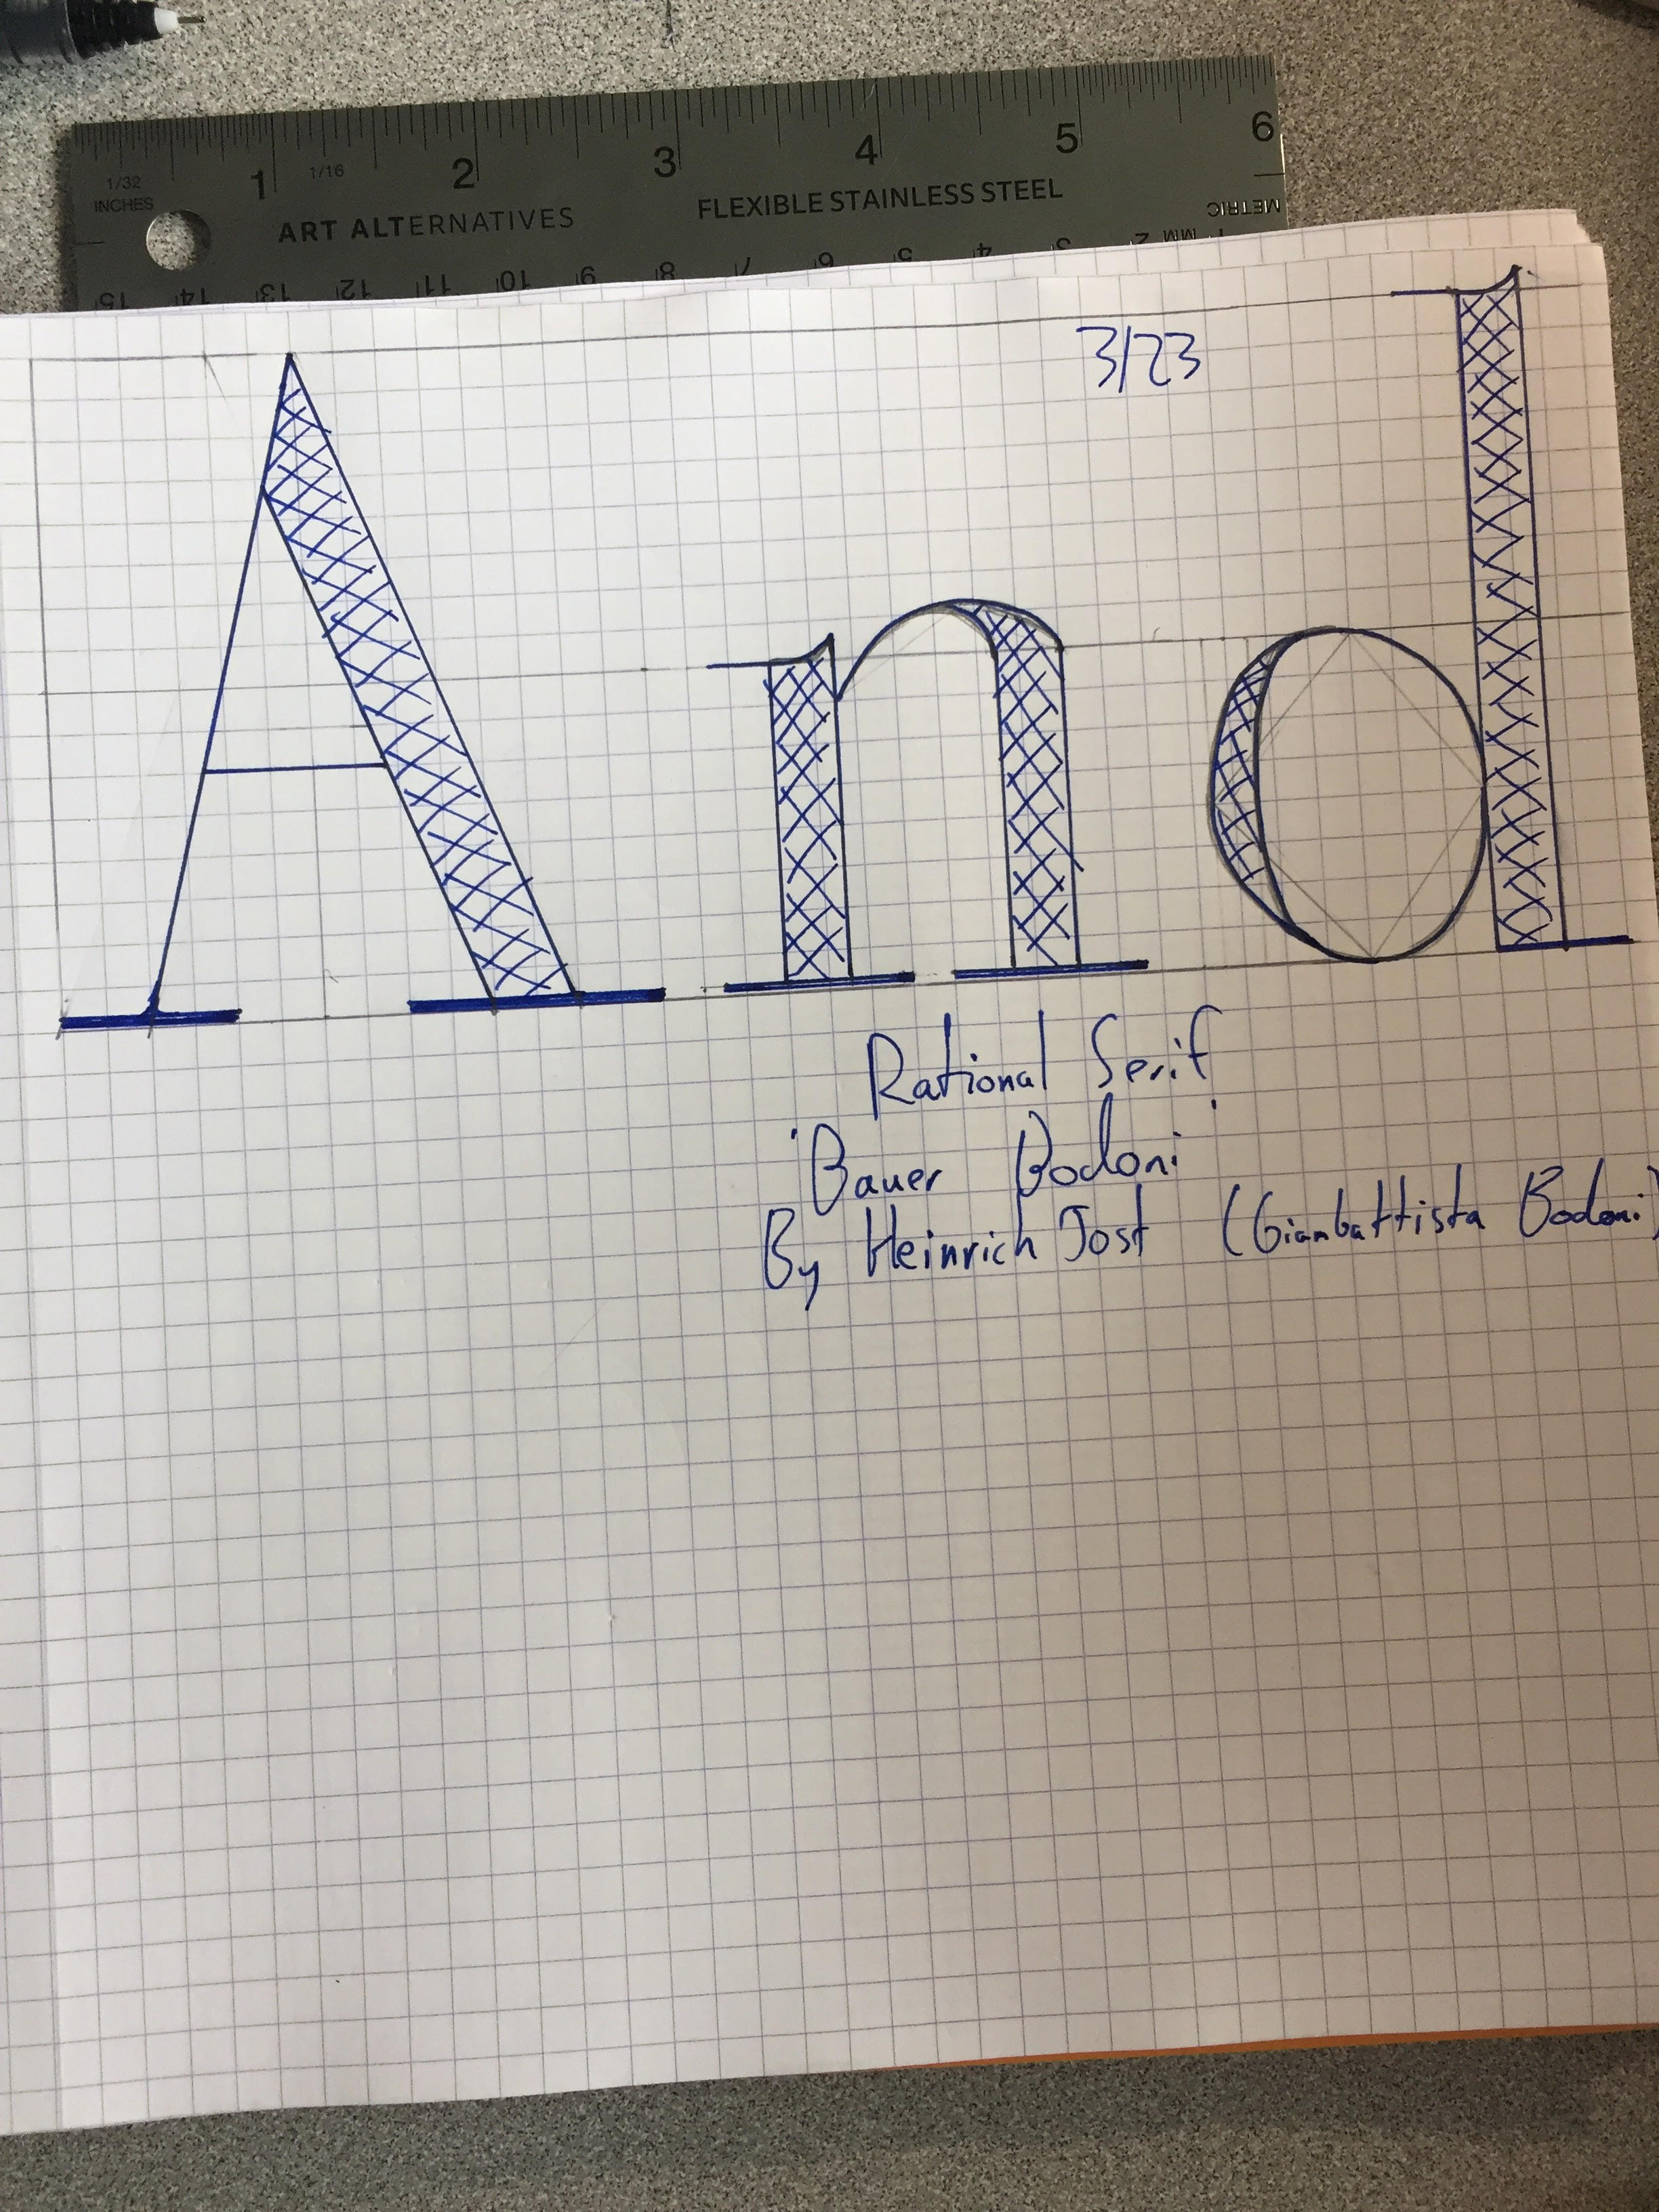 1 2 3 4 5 6
1/32 1/16
INCHES
ART ALTERNATIVES FLEXIBLE STAINLESS STEEL
METRIC
15 14 13 12 11 10 9 8 7 6 5 4 3 2 MM 1
3/23
And
Rational Serif
'Bauer Bodoni'
By Heinrich Jost (Giambattista Bodoni)